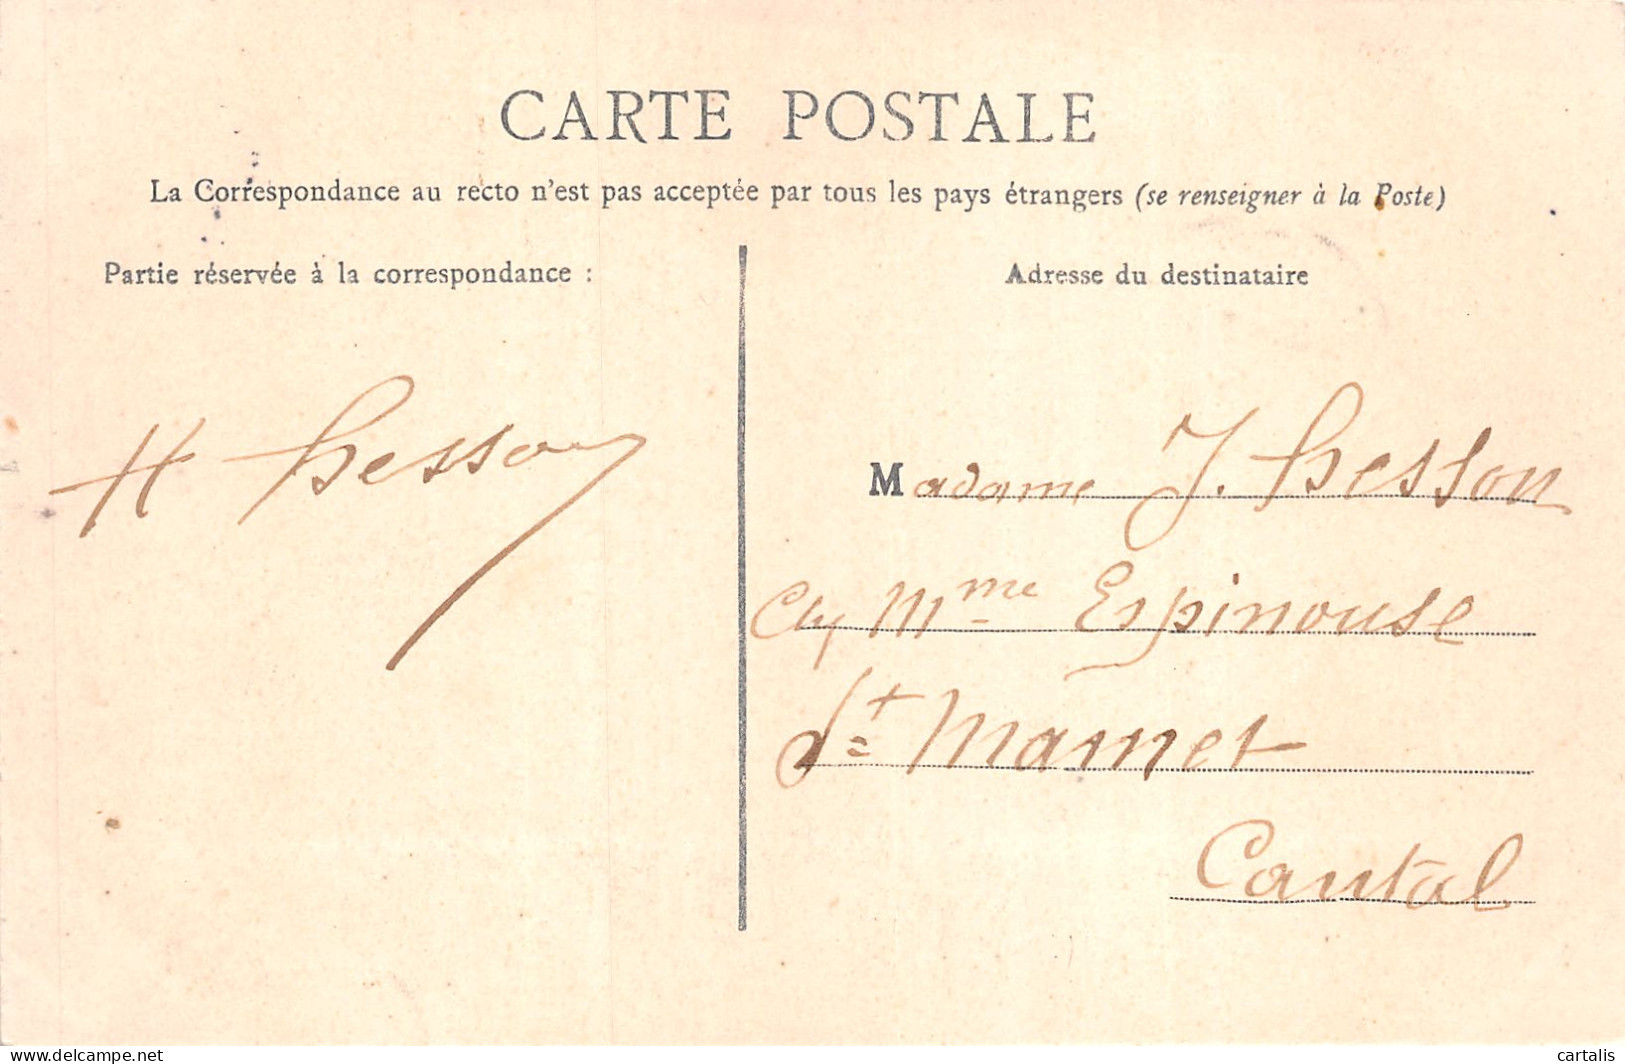 CARTE POSTALE
La Correspondance au recto n'est pas acceptée par tous les pays étrangers (se renseigner à la Poste)
Partie réservée à la correspondance :
Adresse du destinataire
H Besson
Madame J. Besson
Chz Mme Espinouse
St Mamet
Cantal
delcampe.net
cartalis